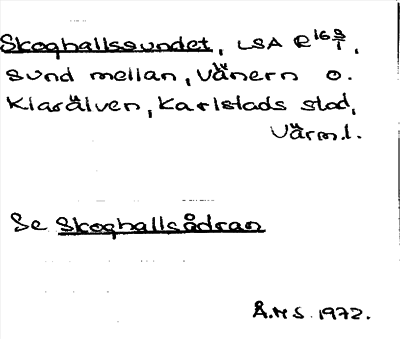 Skoghallssundet, LSA R 16 9/1,
sund mellan, Vänern o.
Klarälven, Karlstads stad,
Värml.
Se Skoghallsådran
Å.H S. 1972.